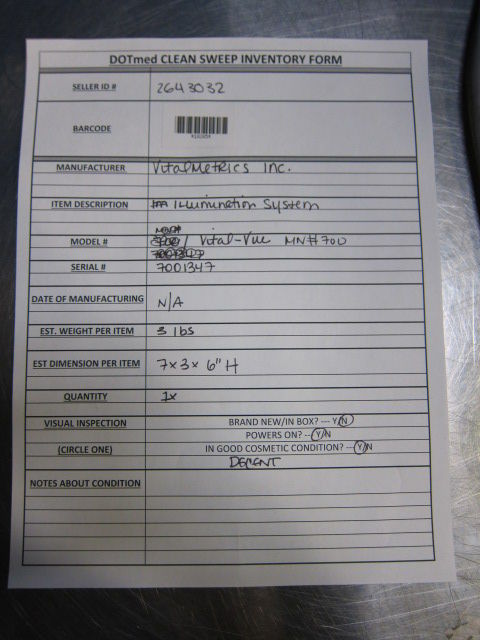 DOTmed CLEAN SWEEP INVENTORY FORM
SELLER ID # 2643032
BARCODE
MANUFACTURER VitalMetrics Inc.
ITEM DESCRIPTION Illumination System
MODEL # Vital-Vue MN#700
SERIAL # 7001347
DATE OF MANUFACTURING N/A
EST. WEIGHT PER ITEM 3 lbs
EST DIMENSION PER ITEM 7x3x 6" H
QUANTITY 1x
VISUAL INSPECTION BRAND NEW/IN BOX? --- Y/N
POWERS ON? --Y/N
(CIRCLE ONE) IN GOOD COSMETIC CONDITION? ---Y/N
DECENT
NOTES ABOUT CONDITION